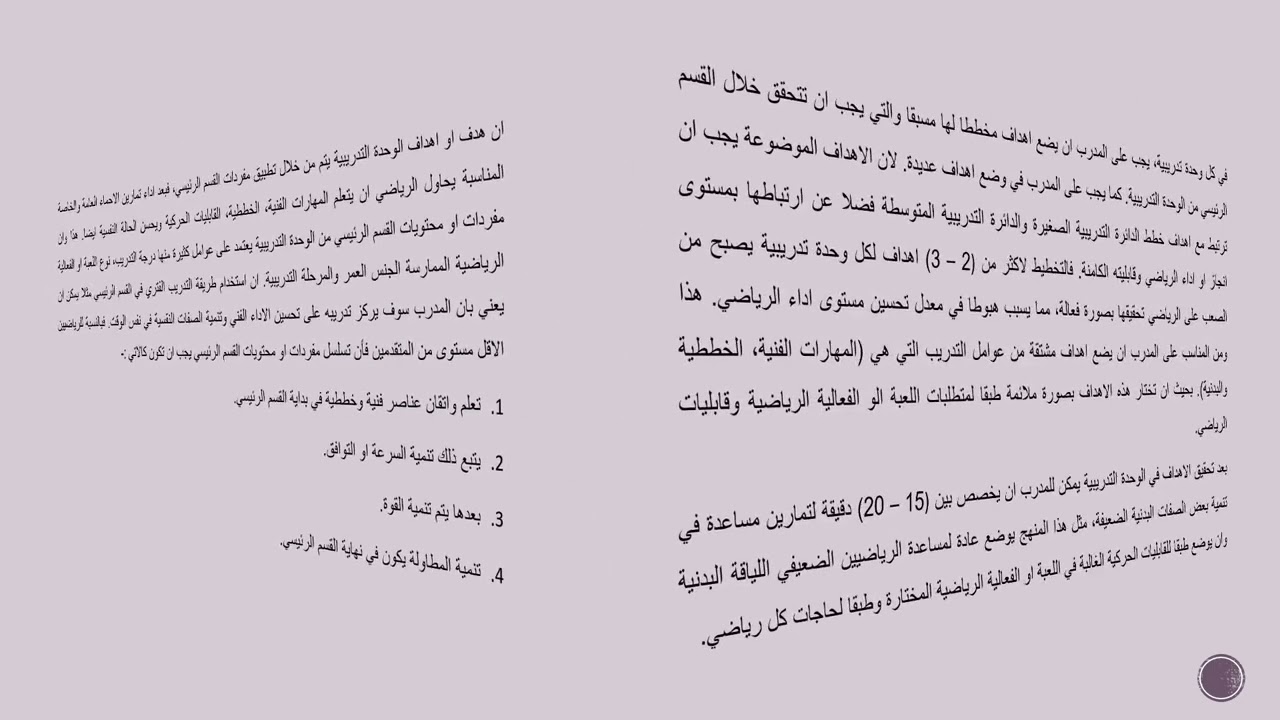 في كل وحدة تدريبية، يجب على المدرب ان يضع اهداف مخططا لها مسبقا والتي يجب ان تتحقق خلال القسم
الرئيسي من الوحدة التدريبية. كما يجب على المدرب في وضع اهداف عديدة. لان الاهداف الموضوعة يجب ان
ترتبط مع اهداف خطط الدائرة التدريبية الصغيرة والدائرة التدريبية المتوسطة فضلا عن ارتباطها بمستوى
انجاز او اداء الرياضي وقابليته الكامنة. فالتخطيط لاكثر من (2 – 3) اهداف لكل وحدة تدريبية يصبح من
الصعب على الرياضي تحقيقها بصورة فعالة، مما يسبب هبوطا في معدل تحسين مستوى اداء الرياضي. هذا
ومن المناسب على المدرب ان يضع اهداف مشتقة من عوامل التدريب التي هي (المهارات الفنية، الخططية
والبدنية). بحيث ان تختار هذه الاهداف بصورة ملائمة طبقا لمتطلبات اللعبة الو الفعالية الرياضية وقابليات
الرياضي.
بعد تحقيق الاهداف في الوحدة التدريبية يمكن للمدرب ان يخصص بين (15 – 20) دقيقة لتمارين مساعدة في
تنمية بعض الصفات البدنية الضعيفة، مثل هذا المنهج يوضع عادة لمساعدة الرياضيين الضعيفي اللياقة البدنية
وان يوضع طبقا للقابليات الحركية الغالبة في اللعبة او الفعالية الرياضية المختارة وطبقا لحاجات كل رياضي.
ان هدف او اهداف الوحدة التدريبية يتم من خلال تطبيق مفردات القسم الرئيسي، فبعد اداء تمارين الاحماء العامة والخاصة
المناسبة يحاول الرياضي ان يتعلم المهارات الفنية، الخططية، القابليات الحركية ويحسن الحالة النفسية ايضا. هذا وان
مفردات او محتويات القسم الرئيسي من الوحدة التدريبية يعتمد على عوامل كثيرة منها درجة التدريب، نوع اللعبة او الفعالية
الرياضية الممارسة الجنس العمر والمرحلة التدريبية. ان استخدام طريقة التدريب الفتري في القسم الرئيسي مثلا يمكن ان
يعني بان المدرب سوف يركز تدريبه على تحسين الاداء الفني وتنمية الصفات النفسية في نفس الوقت. فبالنسبة للرياضيين
الاقل مستوى من المتقدمين فأن تسلسل مفردات او محتويات القسم الرئيسي يجب ان تكون كالاتي :-
1. تعلم واتقان عناصر فنية وخططية في بداية القسم الرئيسي.
2. يتبع ذلك تنمية السرعة او التوافق.
3. بعدها يتم تنمية القوة.
4. تنمية المطاولة يكون في نهاية القسم الرئيسي.